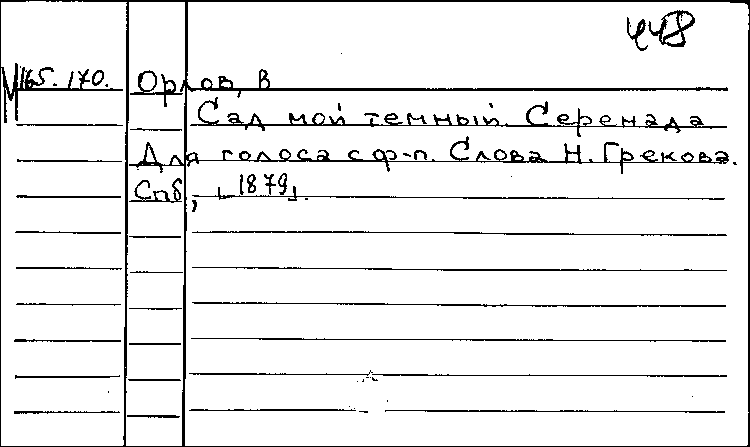 448
М 165.170. Орлов, В
Сад мой темный. Серенада
Для голоса с ф-п. Слова Н. Грекова.
Спб, [1879].